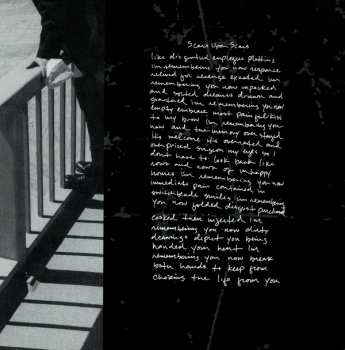 Scars Upon Scars
like disgruntled employees plotting
i'm remembering you now response
relived for revenge exceeded i'm
remembering you now unpacked
and sorted dreams drawn and
quartered i'm remembering you now
empty embrace most painful kiss
to my brow i'm remembering you
now and the memory over stayed
its welcome it's overrated and
overpriced surgeon my eyes so i
don't have to look back like
rows and rows of unhappy
homes i'm remembering you now
immediate pain contained in
switchblade smiles i'm remembering
you now folded disgust punched
cooked then injected i'm
remembering you now dirty
drawings depict you being
handed your heart i'm
remembering you now break
both hands to keep from
choking the life from you